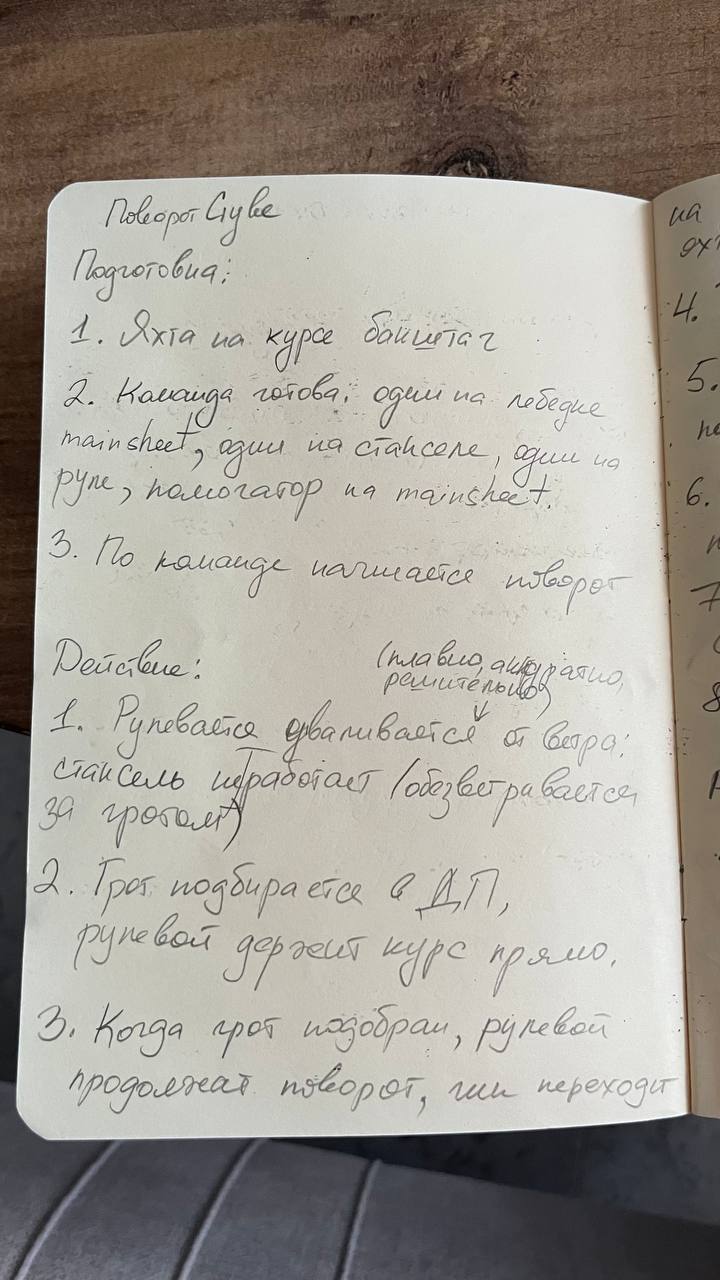 Поворот Gybe
Подготовка:
1. Яхта на курсе бакштаг
2. Команда готова: один на лебедке
mainsheet, один на стакселе, один на
руле, помогатор на mainsheet.
3. По команде начинается поворот
Действие:
(плавно, аккуратно,
решительно)
1. Рулевается уваливается от ветра:
стаксель не работает (обезветривается
за гротом)
2. Грот подбирается в ДП,
рулевой держит курс прямо.
3. Когда грот подобран, рулевой
продолжат поворот, гик переходит
на
яхт
4.
5.
6.
7
8